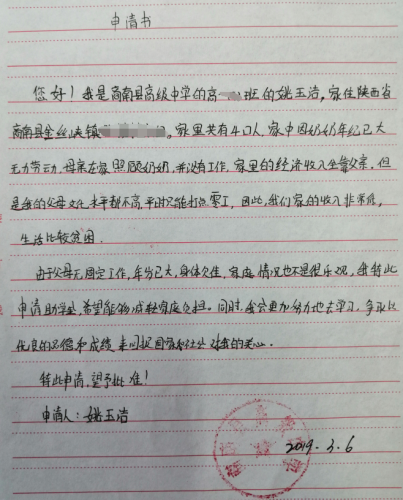 申请书
您好！我是商南县高级中学的高 班的姚玉洁，家住陕西省
商南县金丝峡镇 。家里共有4口人，家中因奶奶年纪已大
无力劳动，母亲在家照顾奶奶，并没有工作，家里的经济收入全靠父亲，但
是我的父母文化水平都不高，平时只能打点零工，因此，我们家的收入非常低。
生活比较贫困。
由于父母无固定工作，年岁已大，身体欠佳，家庭情况也不是很乐观，我特此
申请助学金，希望能够减轻家庭负担。同时，我会更加努力地去学习，争取以
优良的品德和成绩来回报国家和社会对我的关心。
特此申请，望予批准！
申请人：姚玉洁
2019.3.6